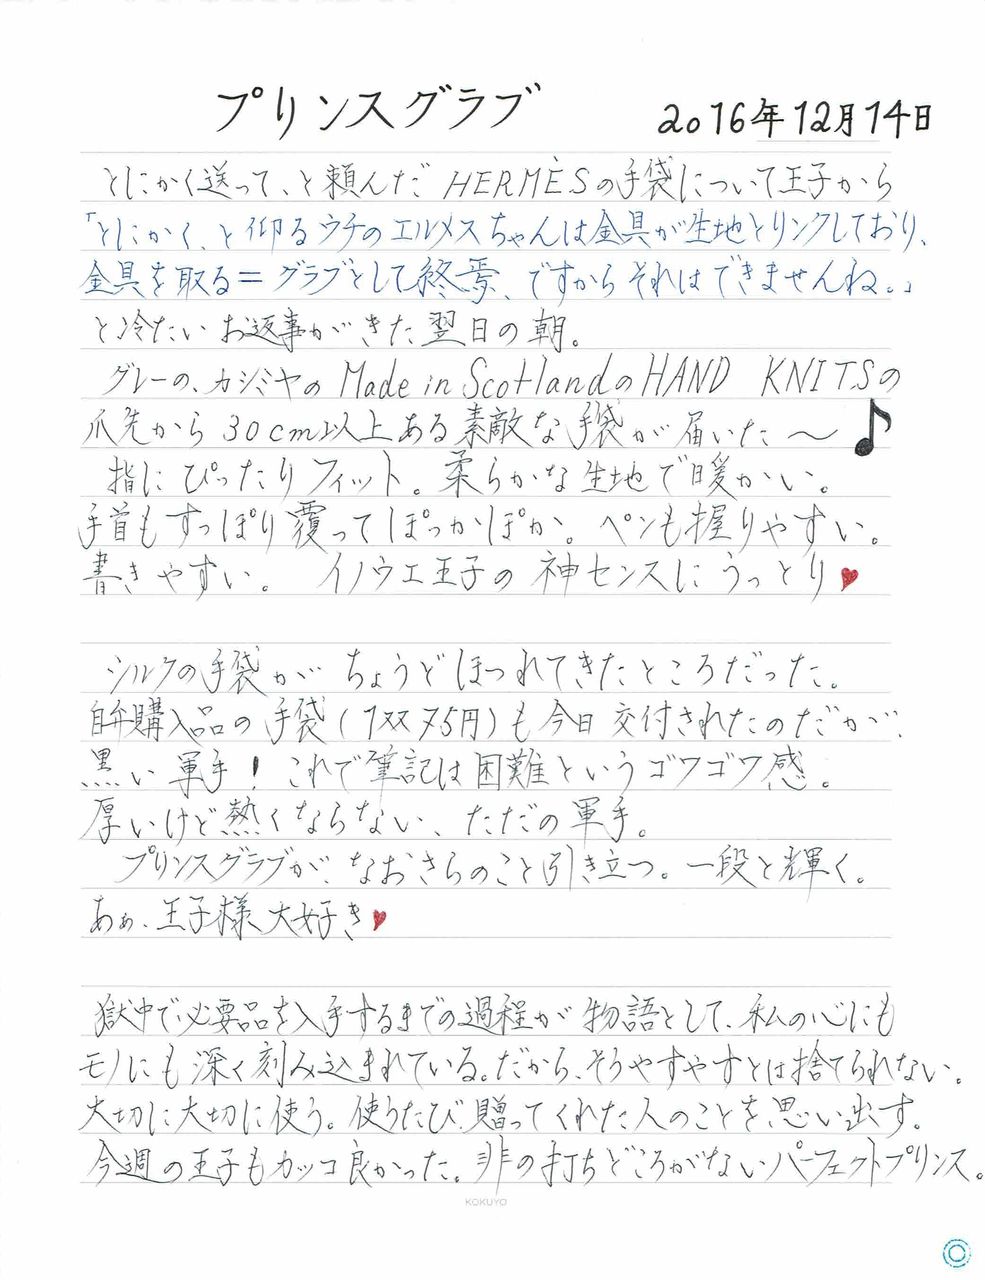 プリンスグラブ
2016年12月14日
とにかく送って、と頼んだ HERMÈSの手袋について王子から
「とにかく、と仰るウチのエルメスちゃんは金具が生地とリンクしており、
金具を取る=グラブとして終焉、ですからそれはできませんね。」
と冷たいお返事がきた翌日の朝。
グレーの、カシミヤの Made in ScotlandのHAND KNITSの
爪先から30cm以上ある素敵な手袋が届いた〜♪
指にぴったりフィット。柔らかな生地で暖かい。
手首もすっぽり覆ってぽっかぽか。ペンも握りやすい。
書きやすい。 イノウエ王子の神センスにうっとり♥
シルクの手袋がちょうどほつれてきたところだった。
自弁購入品の手袋(1双75円)も今日交付されたのだが、
黒い軍手! これで筆記は困難というゴワゴワ感。
厚いけど熱くならない、ただの軍手。
プリンスグラブが、なおさらのこと引き立つ。一段と輝く。
あぁ、王子様大好き♥
獄中で必要品を入手するまでの過程が物語として、私の心にも
モノにも深く刻み込まれている。だから、そうやすやすとは捨てられない。
大切に大切に使う。使うたび、贈ってくれた人のことを思い出す。
今週の王子もカッコ良かった。非の打ちどころがないパーフェクトプリンス。
KOKUYO